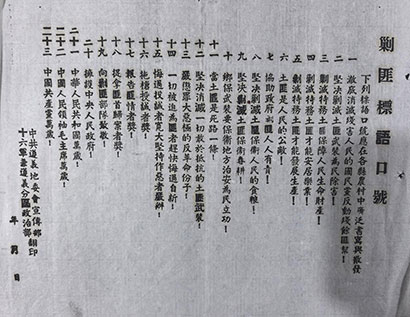 剿匪標語口號
下列標語口號應在各縣農村中廣泛書寫與散發
一 澈底消滅殘害人民的國民黨反動殘餘匪幫！
二 堅决剿滅土匪武裝為民除害！
三 剿滅特務土匪保障人民生命財產！
四 剿滅特務土匪才能安居樂業！
五 剿滅特務土匪才能發展生產！
六 土匪是人民的公敵！
七 協助政府剿匪人人有責！
八 堅决剿滅土匪保衛人民的食糧！
九 堅决剿滅土匪保衛春耕！
十 鄉保武裝要保衛地方治安為民立功！
十一 當土匪是死路一條！
十二 堅决消滅一切敢於抵抗的土匪武裝！
十三 嚴懲罪大惡極的反革命份子！
十四 一切被迫為匪者趕快悔過自新！
十五 悔過投誠者寬大堅持作惡者嚴辦！
十六 拖槍投誠者獎！
十七 報告匪情者獎！
十八 捉拿匪首歸案者獎！
十九 向剿匪部隊致敬！
二十 擁護中央人民政府！
二十一 中華人民共和國萬歲！
二十二 中國人民領袖毛主席萬歲！
二十三 中國共產黨萬歲！
中共遵義地委會宣傳部翻印
十六軍兼遵義分區政治部
年 月 日